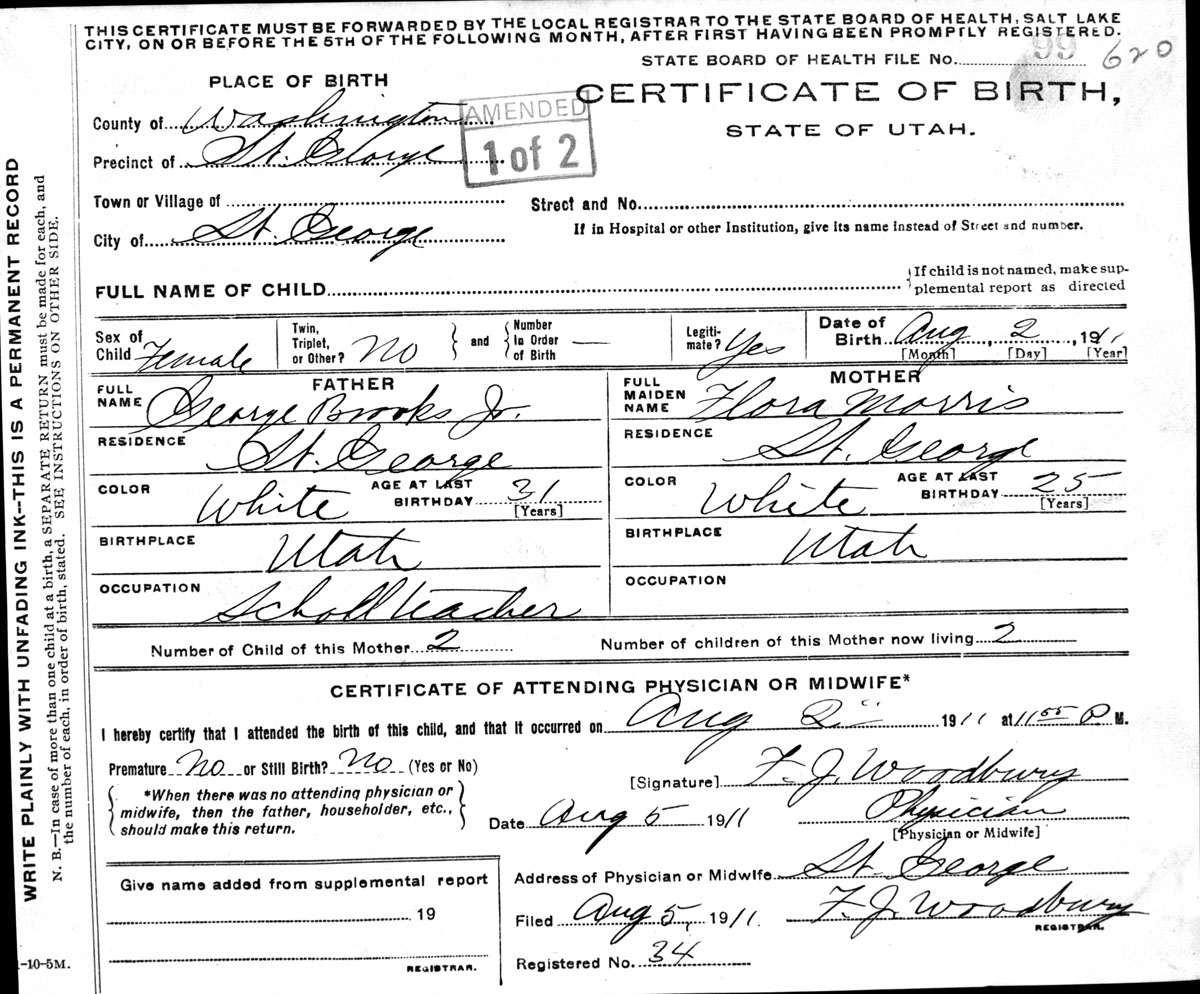 THIS CERTIFICATE MUST BE FORWARDED BY THE LOCAL REGISTRAR TO THE STATE BOARD OF HEALTH, SALT LAKE
CITY, ON OR BEFORE THE 5TH OF THE FOLLOWING MONTH, AFTER FIRST HAVING BEEN PROMPTLY REGISTERED.
STATE BOARD OF HEALTH FILE No. 99 620
PLACE OF BIRTH
CERTIFICATE OF BIRTH,
STATE OF UTAH.
AMENDED
1 of 2
County of Washington
Precinct of St. George
Town or Village of
Street and No.
City of St. George
If in Hospital or other Institution, give its name instead of Street and number.
FULL NAME OF CHILD
If child is not named, make sup-
plemental report as directed
Sex of Child Female
Twin, Triplet, or Other? No
and
Number In Order of Birth —
Legiti-mate? Yes
Date of Birth Aug 2, 1911
[Month] [Day] [Year]
FATHER
FULL NAME George Brooks Jr.
RESIDENCE St. George
COLOR White AGE AT LAST BIRTHDAY 31
[Years]
BIRTHPLACE Utah
OCCUPATION School teacher
MOTHER
FULL MAIDEN NAME Flora Morris
RESIDENCE St. George
COLOR White AGE AT LAST BIRTHDAY 25
[Years]
BIRTHPLACE Utah
OCCUPATION
Number of Child of this Mother 2 Number of children of this Mother now living 2
CERTIFICATE OF ATTENDING PHYSICIAN OR MIDWIFE*
I hereby certify that I attended the birth of this child, and that it occurred on Aug 2 1911 at 11 55 P M.
Premature No or Still Birth? No (Yes or No)
[Signature] F. J. Woodbury
*When there was no attending physician or
midwife, then the father, householder, etc.,
should make this return.
Date Aug 5 1911 Physician
[Physician or Midwife]
Give name added from supplemental report
19
REGISTRAR.
Address of Physician or Midwife St. George
Filed Aug 5, 1911. F. J. Woodbury
REGISTRAR.
Registered No. 34
-10-5M.
WRITE PLAINLY WITH UNFADING INK--THIS IS A PERMANENT RECORD
N. B.—In case of more than one child at a birth, a SEPARATE RETURN must be made for each, and
the number of each, in order of birth, stated. SEE INSTRUCTIONS ON OTHER SIDE.